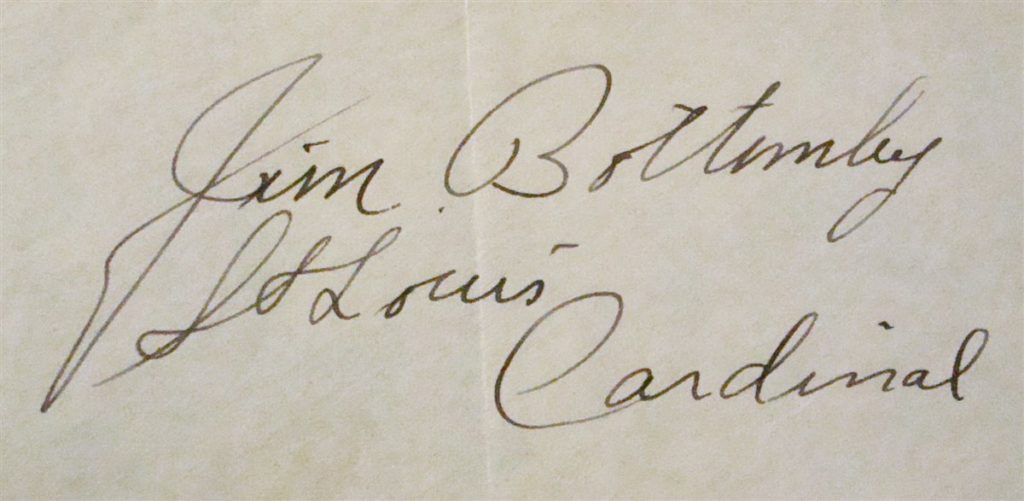 Jim Bottomley
St Louis
Cardinal